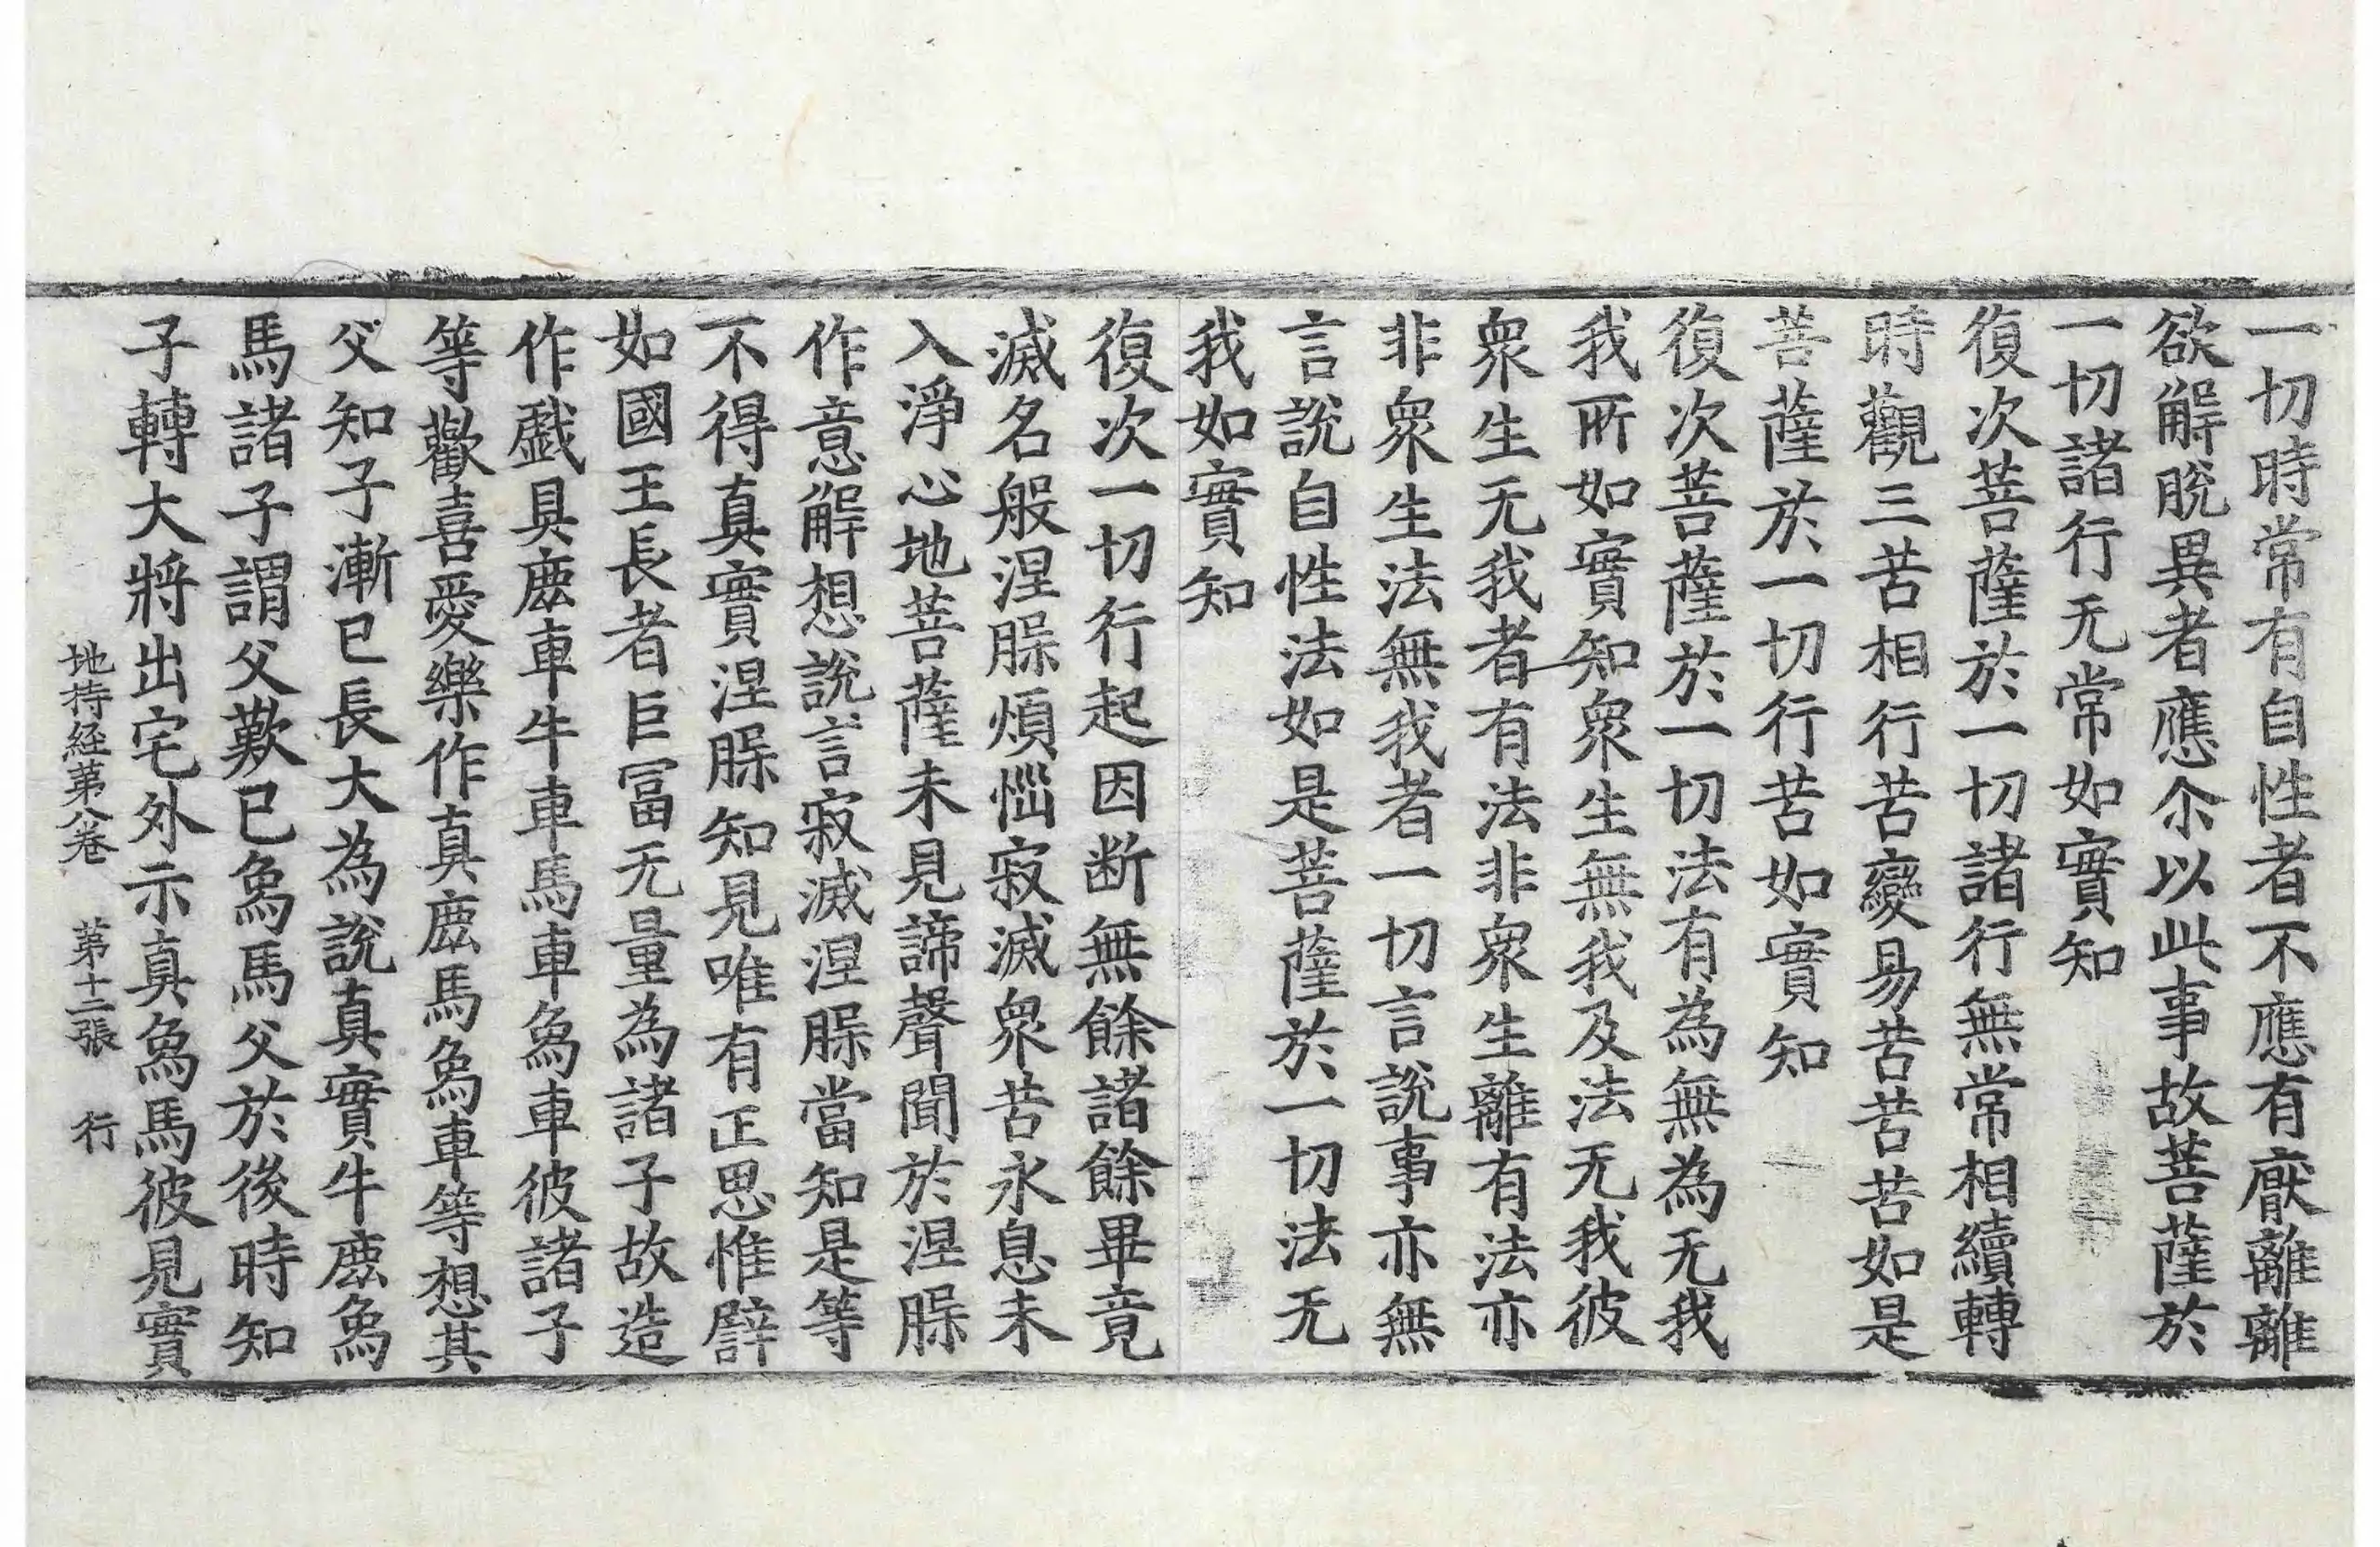 一切時常有自性者不應有厭離離
欲解脫異者應尒以此事故菩薩於
一切諸行无常如實知
復次菩薩於一切諸行無常相續轉
時觀三苦相行苦變易苦苦苦如是
菩薩於一切行苦如實知
復次菩薩於一切法有為無為无我
我所如實知衆生無我及法无我彼
衆生无我者有法非衆生離有法亦
非衆生法無我者一切言說事亦無
言說自性法如是菩薩於一切法无
我如實知
復次一切行起因断無餘諸餘畢竟
滅名般涅脲煩惱寂滅衆苦永息未
入淨心地菩薩未見諦聲聞於涅脲
作意解想說言寂滅涅脲當知是等
不得真實涅脲知見唯有正思惟譬
如國王長者巨冨无量為諸子故造
作戲具鹿車牛車馬車象車彼諸子
等歡喜愛樂作真鹿馬象車等想其
父知子漸已長大為說真實牛鹿象
馬諸子謂父歎已象馬父於後時知
子轉大將出宅外示真象馬彼見實
地持経苐八卷 苐十二張 行